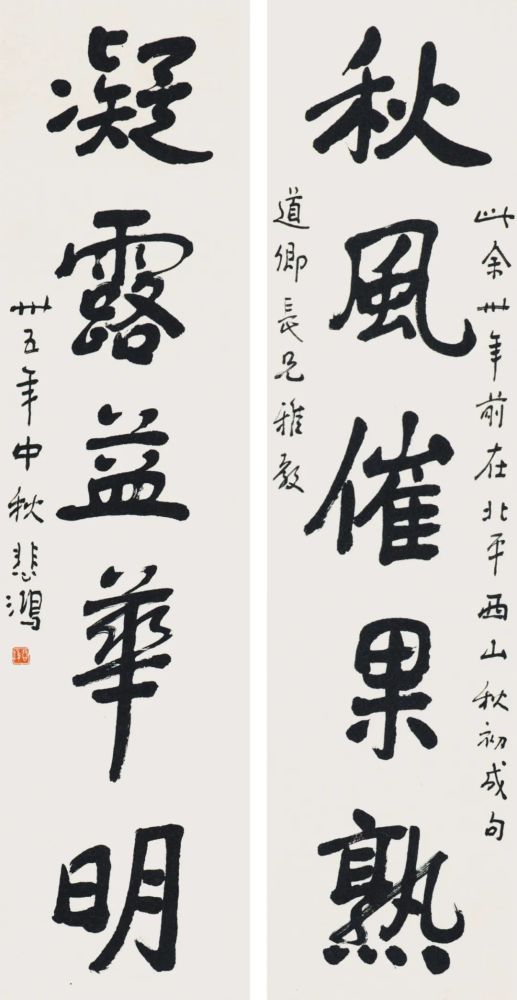 此余卅年前在北平西山秋初成句
秋風催果熟
道卿長兄雅教
凝露益華明
卅五年中秋悲鴻